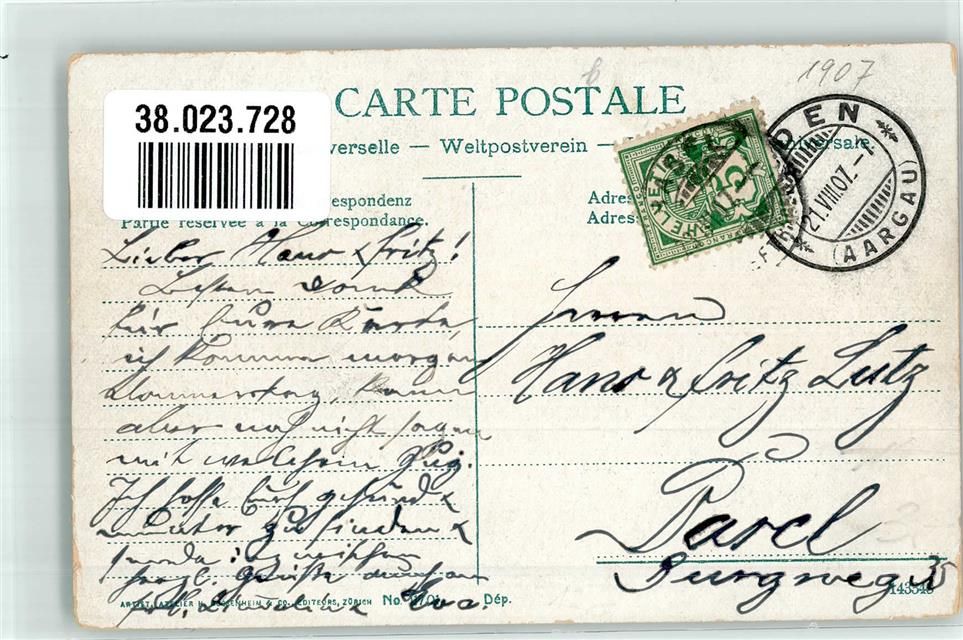 1907
38.023.728
CARTE POSTALE
verselle — Weltpostverein — universale.
espondenz
Partie réservée à la Correspondance.
Adres
Adres
BADEN
21.VIII.07.–1
(AARGAU)
25
Lieber Hans & Fritz!
Besten Dank
für Eure Karte,
ich komme morgen
Donnerstag, kann
aber noch nicht sagen
mit welchem Zug.
Ich hoffe Euch gesund &
munter zu finden &
sende inzwischen
herzl. Grüsse
Herren
Hans & Fritz Lutz
Basel
Burgweg
ARTIST. ATELIER H. GUGGENHEIM & CO., EDITEURS, ZÜRICH No. Dép.
143546